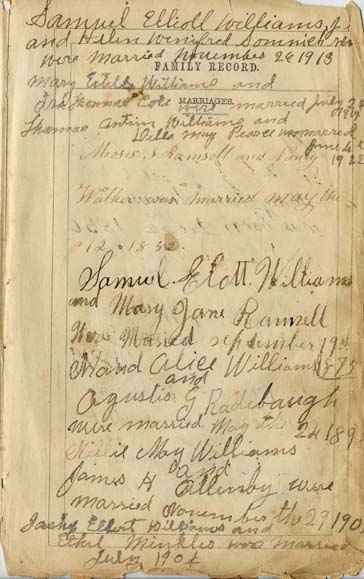 Samuel Elliott Williams, jr
and Helen Winifred
were married November 26 1913
FAMILY RECORD.
Mary Estell Williams and
Ira Thomas Cole were married July 2
MARRIAGES.
Thomas Williams and
Della May Pearce married
June
1922
Moses Ramsell and Nancy
Walker was married may the
12. 1852.
Samuel. Elott. Williams
and Mary Jane Ramsell
Were Maried september 19th
1875
Maud Alice Williams
and
Agustis G Radebaugh
were married May the 24 189
Millie May Williams
and
James H Ellensby were
married November the 29 190
Jashy Ellert Williams and
Ethel Minkles were Married
July 1904